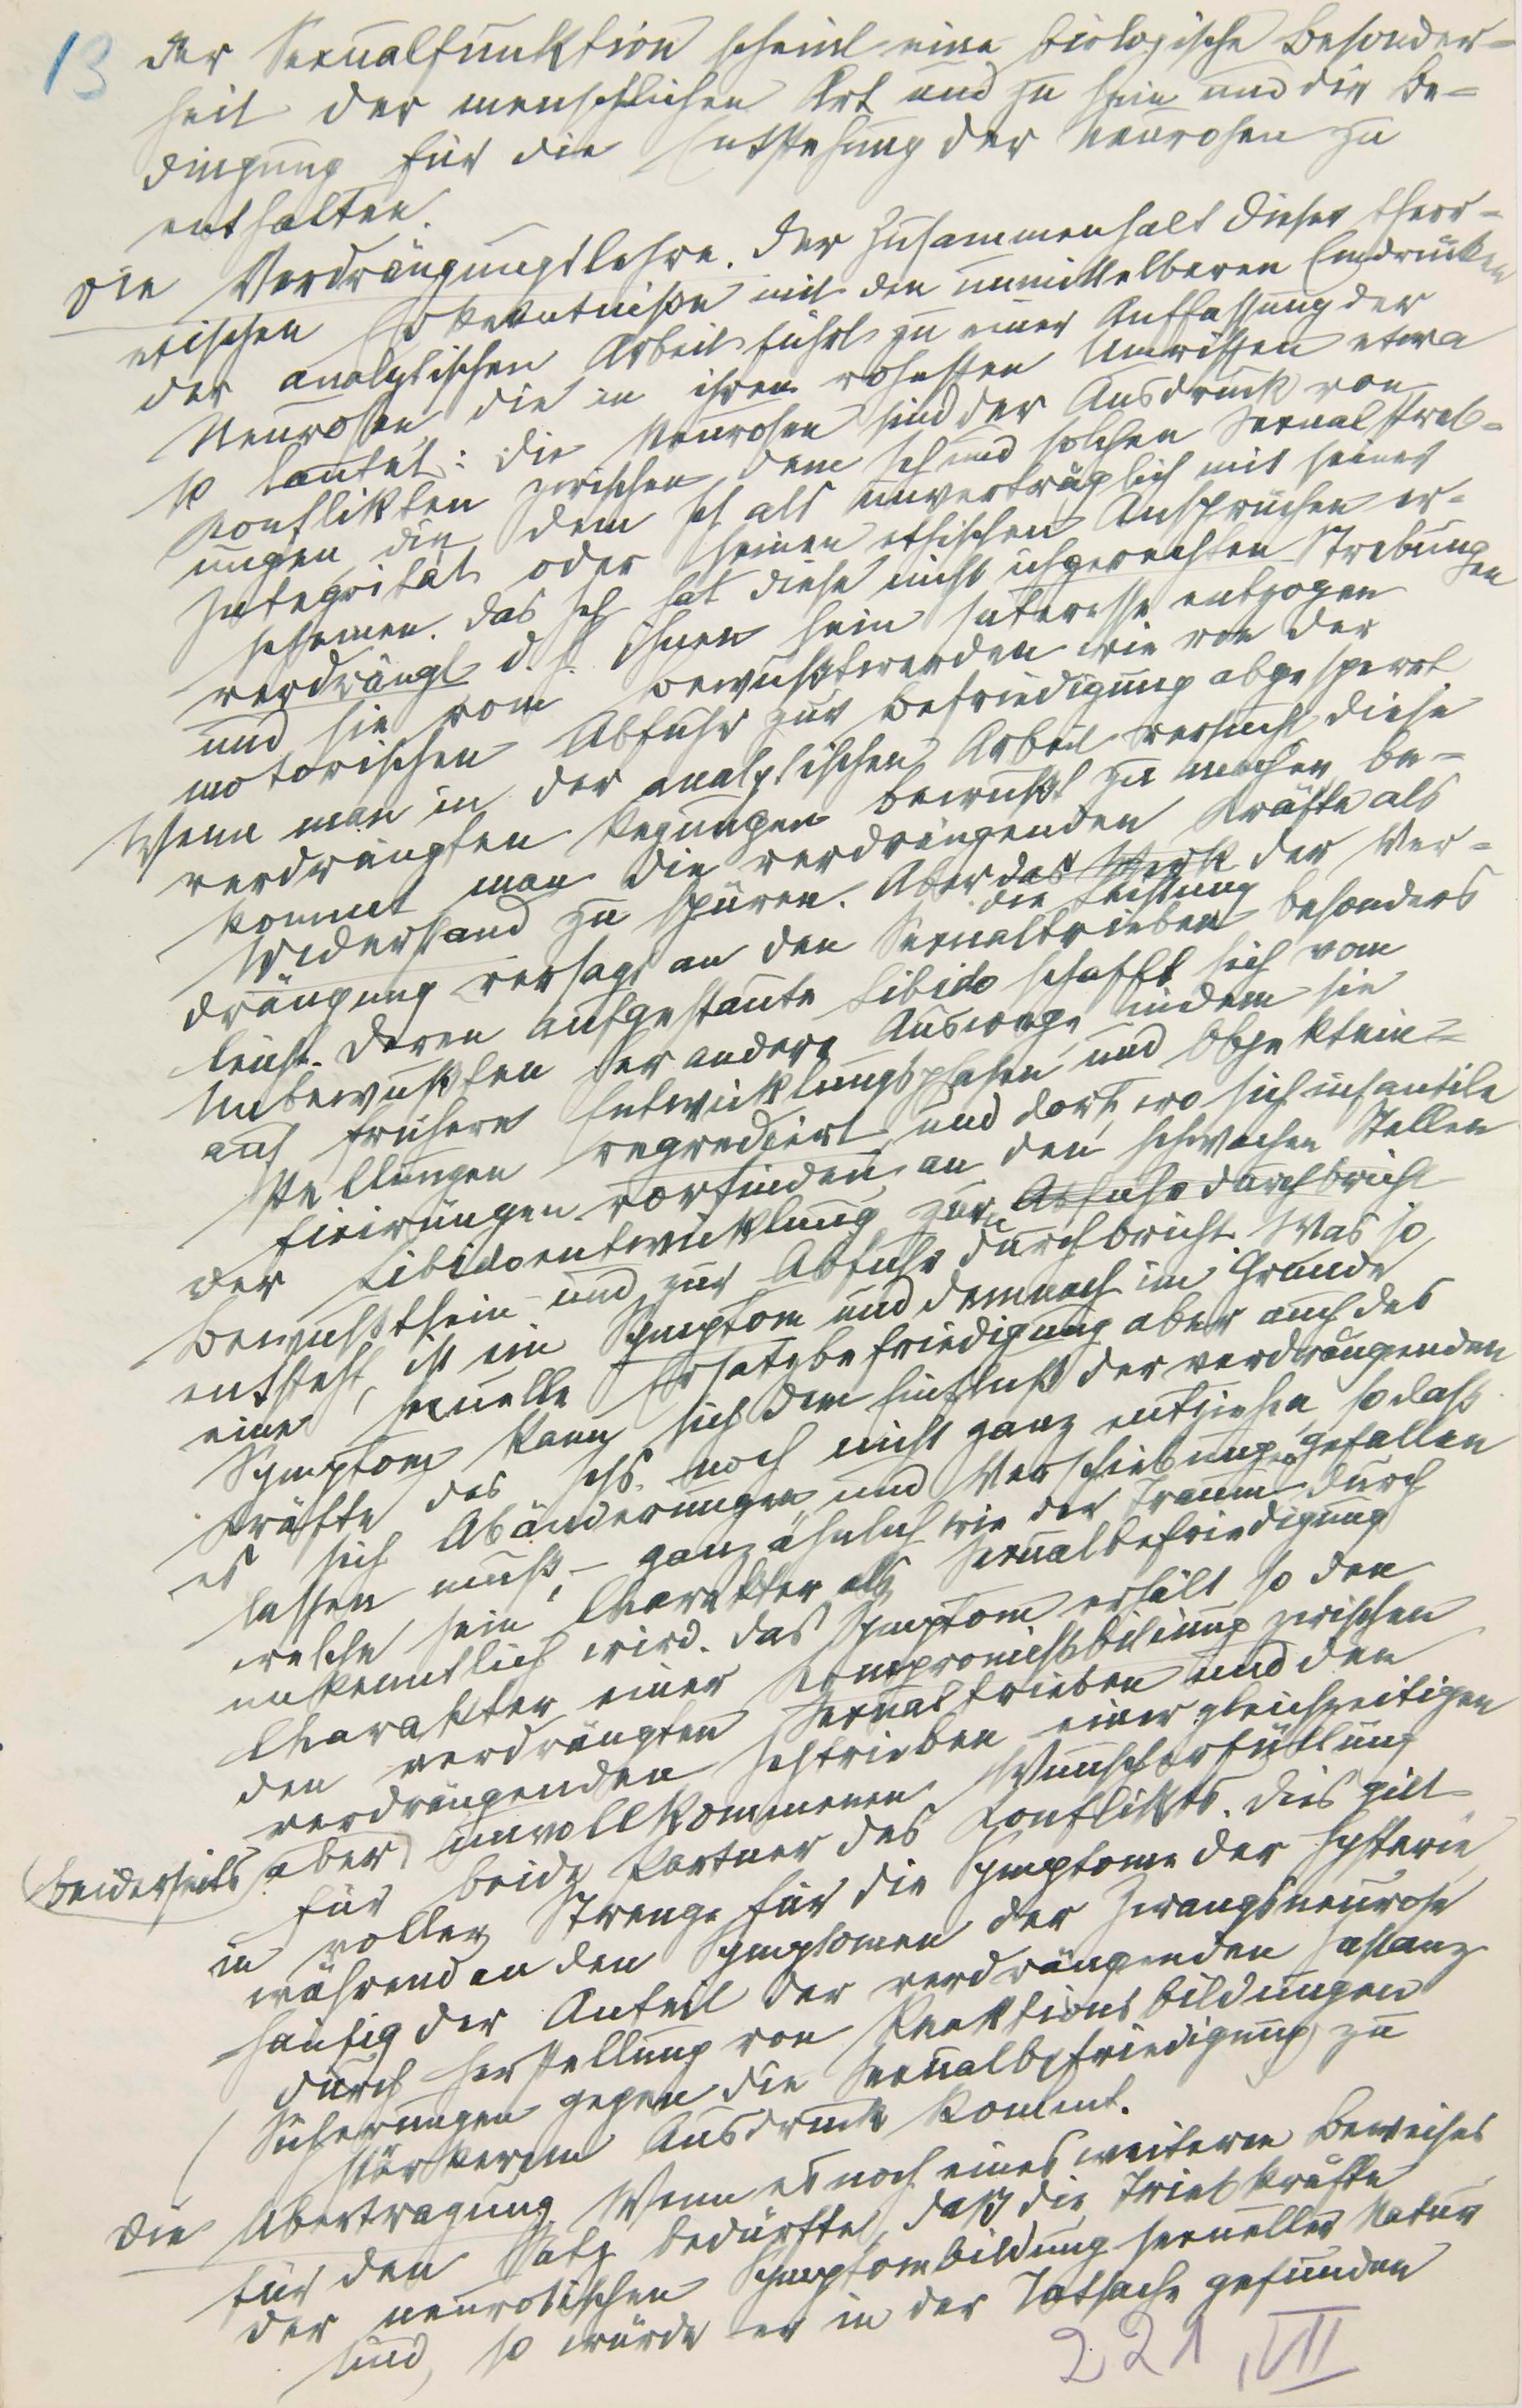 13 der Sexualfunktion scheint eine biologische Besonder-
heit der menschlichen Art und zu sein und die Be-
dingung für die Entstehung der Neurosen zu
enthalten.
Die Verdrängungslehre. Der Zusammenhalt dieser theor-
etischen Erkenntnisse mit den unmittelbaren Eindrücken
der analytischen Arbeit führt zu einer Auffassung der
Neurosen, die in ihren rohesten Umrissen etwa
so lautet: Die Neurosen sind der Ausdruck von
Konflikten zwischen dem Ich und solchen Sexualstreb-
ungen, die dem Ich als unverträglich mit seiner
Integrität oder seinen ethischen Ansprüchen er-
scheinen. Das Ich hat diese nicht ichgerechten Strebungen
verdrängt d. h. ihnen sein Interesse entzogen
und sie vom Bewußtwerden wie von der
motorischen Abfuhr zur Befriedigung abgesperrt
Wenn man in der analytischen Arbeit versucht, diese
verdrängten Regungen bewußt zu machen, be-
kommt man die verdrängenden Kräfte als
Widerstand zu spüren. Aber das Werk der Ver-
die Leistung
drängung versagt an den Sexualtrieben besonders
leicht. Deren aufgestaute Libido schafft sich vom
Unbewußten her andere Auswege, indem sie
auf frühere Entwicklungsphasen und Objektein-
stellungen regrediert und dort, wo sich infantile
Fixirungen vorfinden, an den schwachen Stellen
der Libidoentwicklung zum Abfuhr durchbricht
Bewußtsein und zur Abfuhr durchbricht. Was so
entsteht, ist ein Symptom und demnach im Grunde
eine sexuelle Ersatzbefriedigung aber auch das
Symptom kann sich dem Einfluß der verdrängenden
Kräfte des Ichs noch nicht ganz entziehen, sodaß
es sich Abänderungen und Verschiebungen gefallen
lassen muß, – ganz ähnlich wie der Traum – durch
welche sein Charakter als Sexualbefriedigung
unkenntlich wird. Das Symptom erhält so den
Charakter einer Kompromißbildung zwischen
den verdrängten Sexualtrieben und den
verdrängenden Ichtrieben einer gleichzeitigen
beiderseits aber unvollkommenen Wunscherfüllung
für beide Partner des Konflikts. Dies gilt
in voller Strenge für die Symptome der Hysterie
während an den Symptomen der Zwangsneurose
häufig der Anteil der verdrängenden Instanz
durch Herstellung von Reaktionsbildungen
Sicherungen gegen die Sexualbefriedigung zu
stärkerem Ausdruck kommt.
Die Übertragung. Wenn es noch eines weiteren Beweises
für den Satz bedürfte, daß die Triebkräfte
der neurotischen Symptombildung sexueller Natur
sind, so würde er in der Tatsache gefunden
221, VII